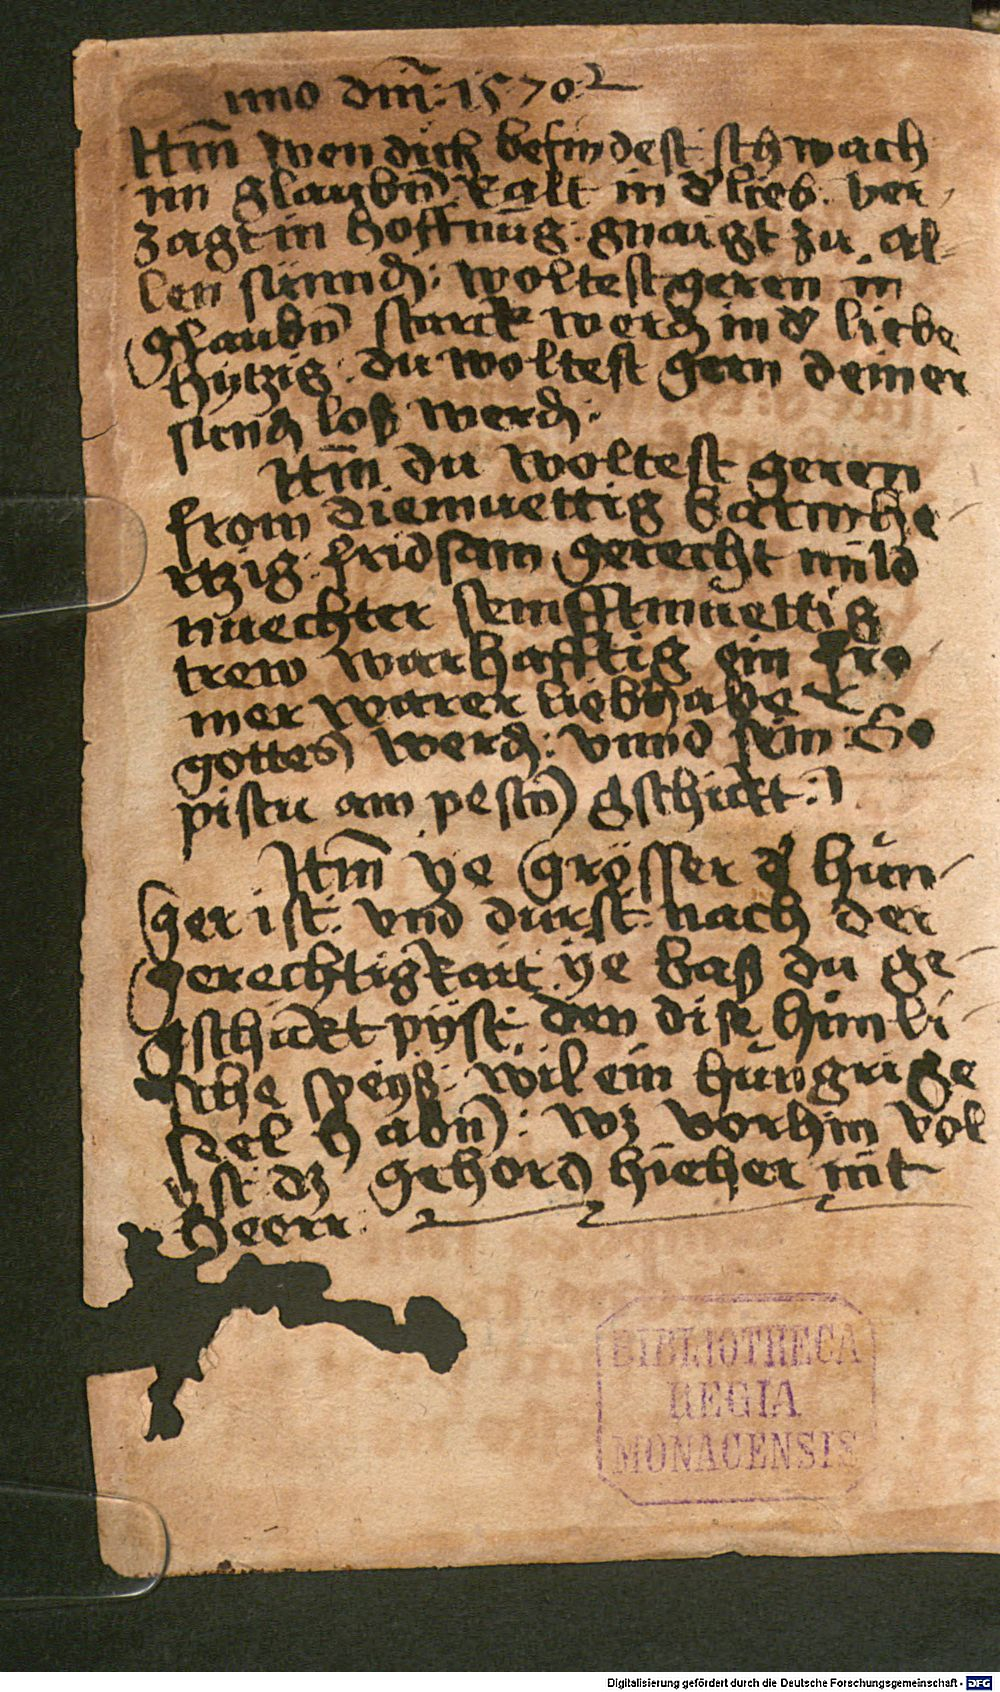 Anno dm̄: 1570
Itm̄ wen dich befindest schwach
im glaubn̄ kalt in d' lieb. ver-
zagt in hoffnūg: gnaigt zu al-
len sünndn̄: woltest geren in
glaubn̄ starck werdn̄ in d' liebe
hytzig: du woltest gern deiner
sundn̄ loß werdn̄:
Itm̄ du woltest geren
from diemuettig barmhe-
rtzig: fridsam gerecht mild
nuechter semfftmuettig
trew warhafftig ein fro-
mer warer liebhaber
gottes werdn̄: vnnd sein: So
pistu am pestn̄ gschickt:
Itm̄ ye grösser d' hün-
ger ist: vnd durst nach der
gerechtigkait ye baß du ge-
gschickt pyst: den dise himli-
sche speyß: wil ein hungrige
sel habn̄: wz vorhin vol
yst dz gehord hieher nit
heerr
BIBLIOTHECA
REGIA
MONACENSIS
Digitalisierung gefördert durch die Deutsche Forschungsgemeinschaft - DFG